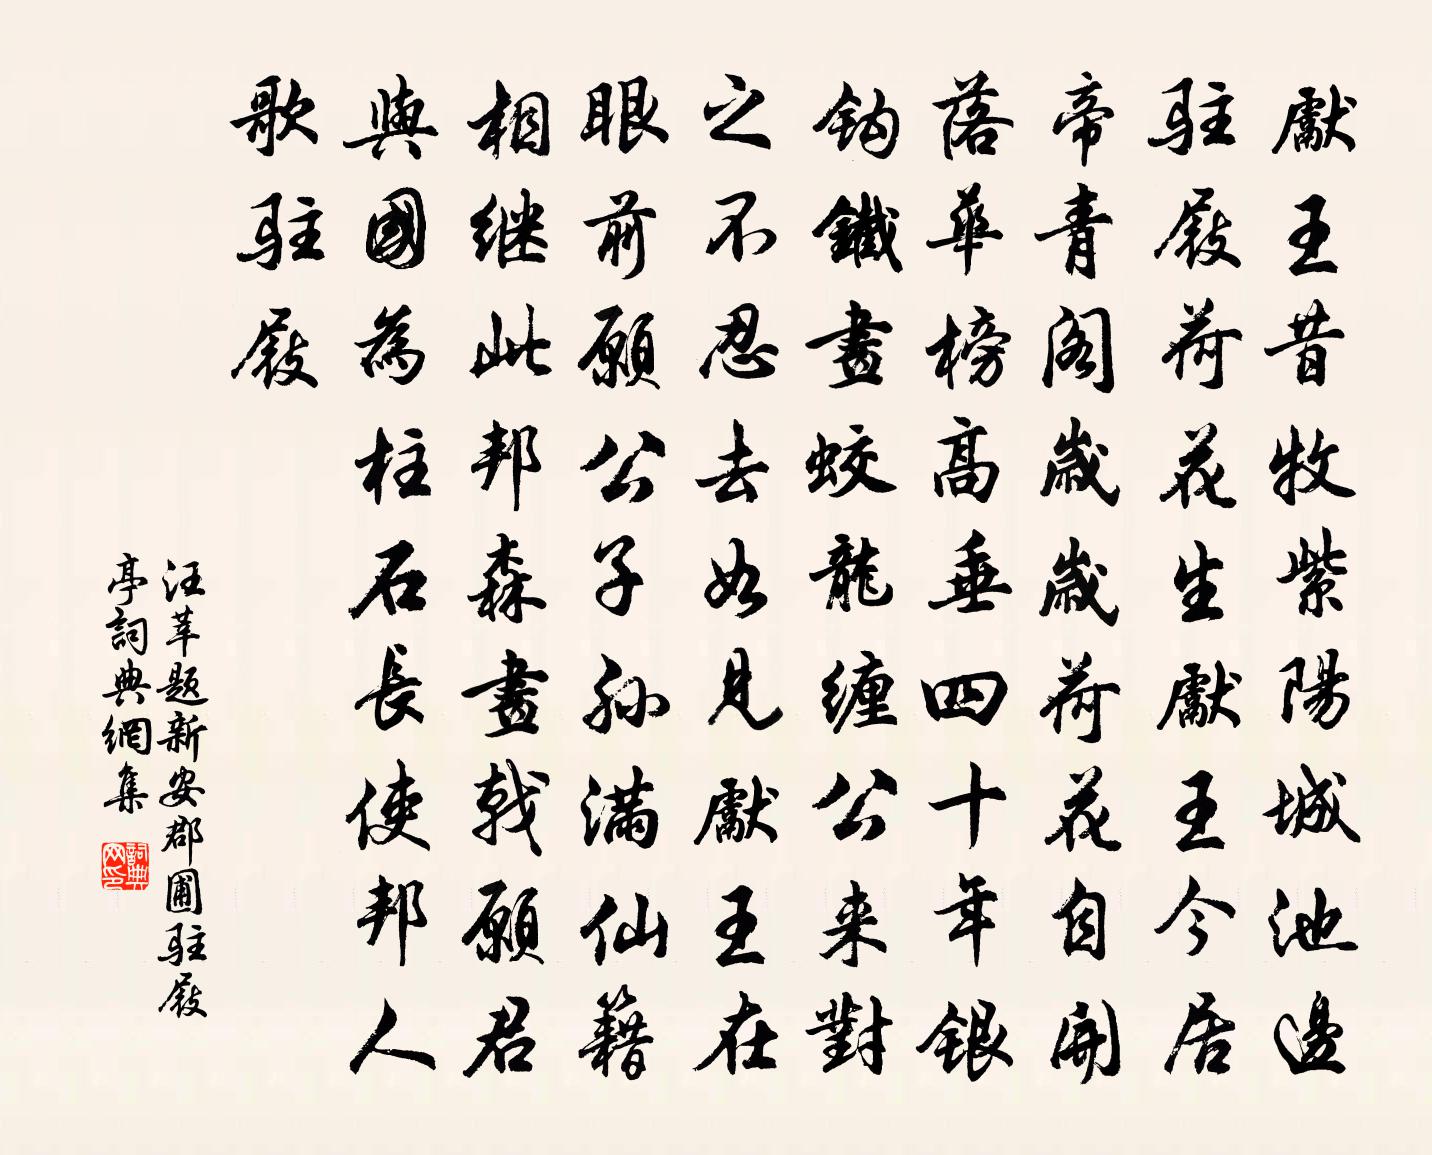 獻王昔牧紫陽城池邊
駐屐荷花生獻王今居
帝青閣歲歲荷花自開
落華榜高垂四十年銀
鈎鐵畫蛟龍纏公来對
之不忍去如見獻王在
眼前願公子孫滿仙籍
相继此邦森畫戟願君
與國為柱石長使邦人
歌駐屐
汪莘题新安郡圃駐屐
亭詞典網集
詞典
网印